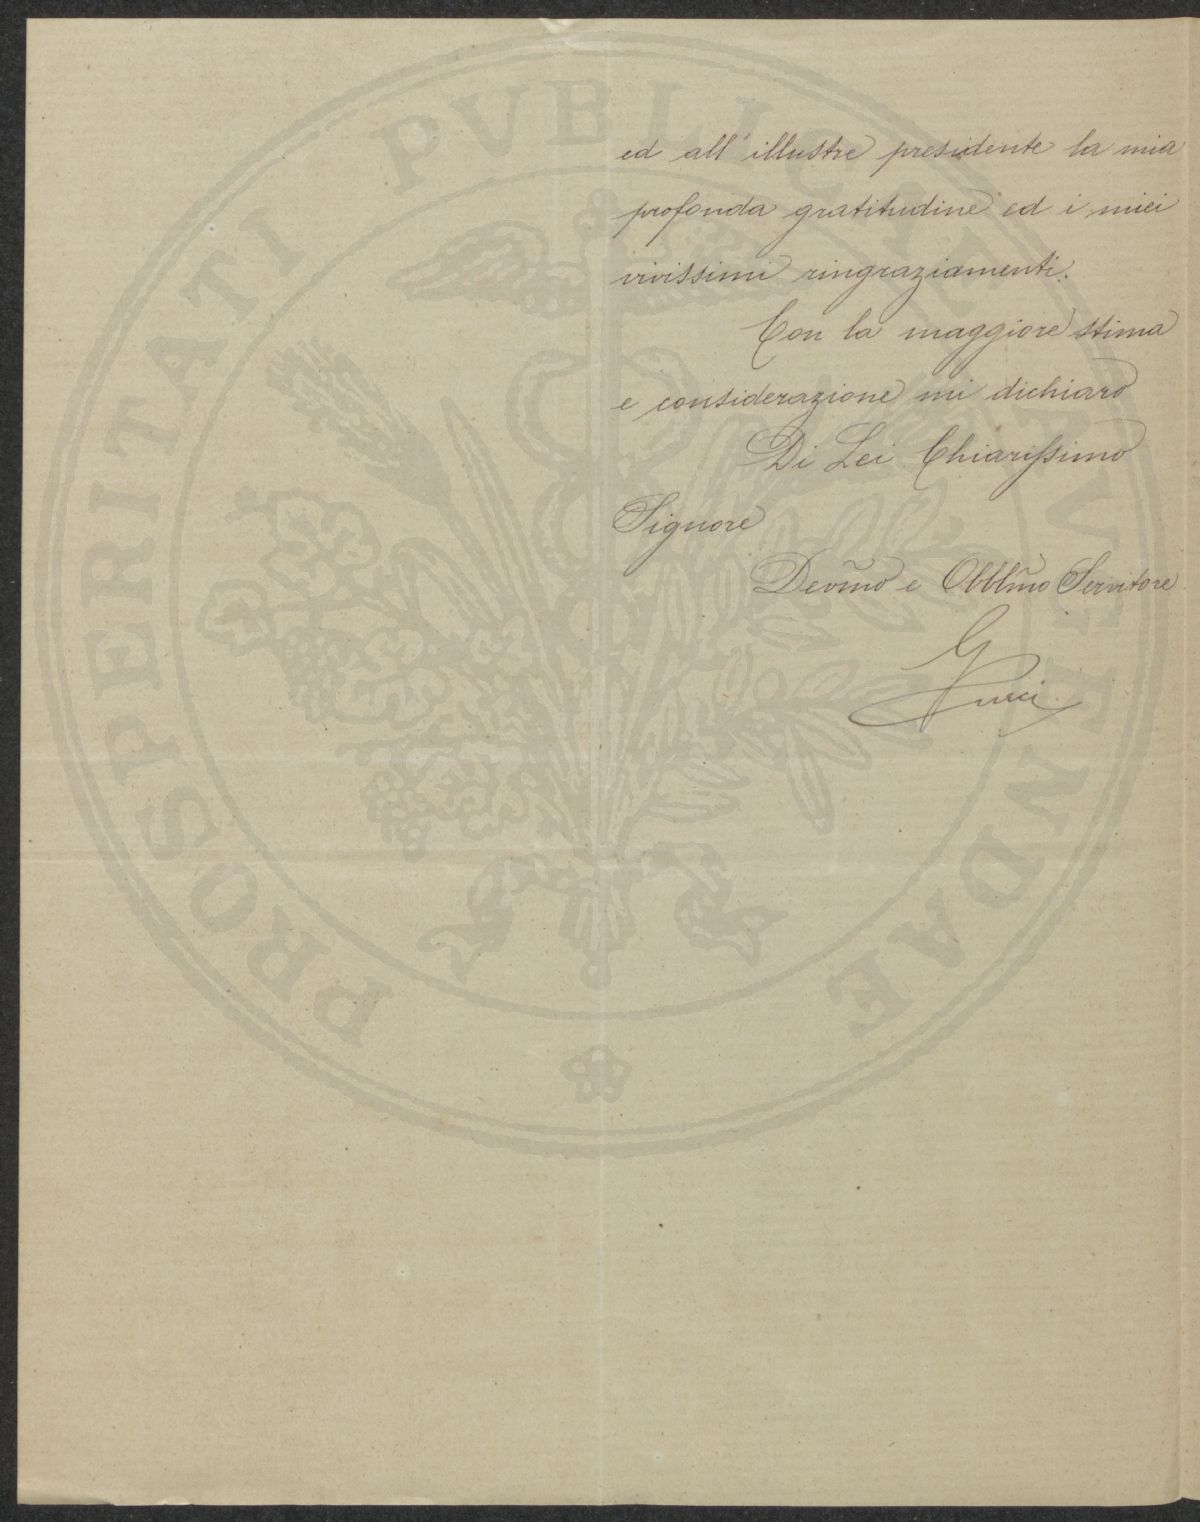 ed all'illustre presidente la mia
profonda gratitudine ed i miei
vivissimi ringraziamenti.
Con la maggiore stima
e considerazione mi dichiaro
Di Lei Chiarissimo
Signore
Devmo e Obblmo Servitore
G
PROSPERITATI PVBLICAE AVGENDAE